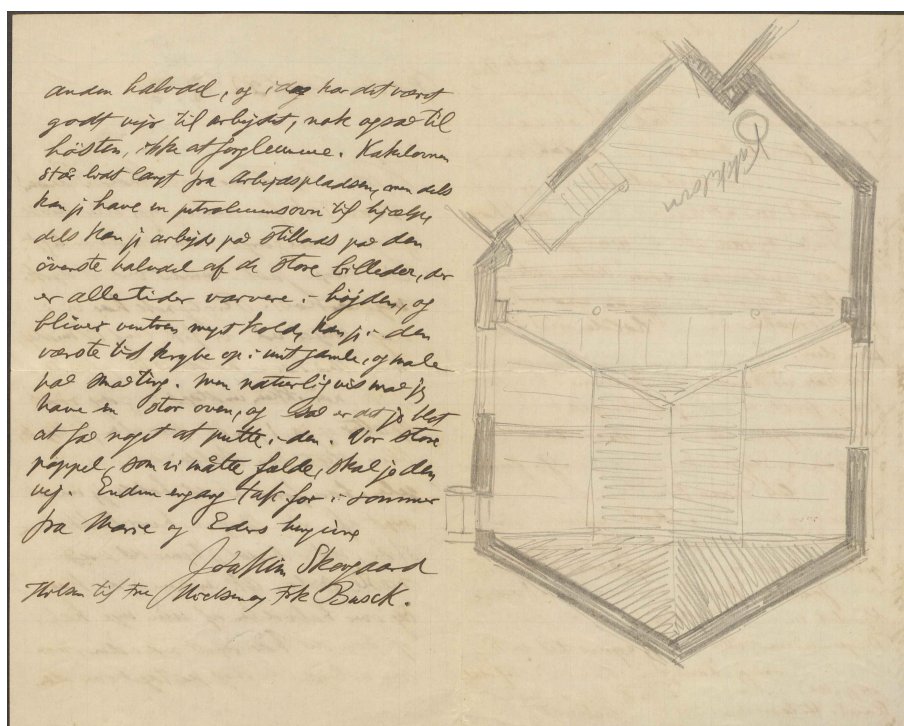 anden halvdel, og idag har det været
godt vejr til arbejdet, nok også til
hösten, ikke at forglemme. Kakelovnen
står lidt langt fra Arbejdspladsen, men dels
kan jeg have en petroleumsovn til hjælp,
dels kan jeg arbejde på stillads på den
överste halvdel af de store billeder, der
er alle tider varmere i höjden, og
bliver vintren meget kold, kan jeg i den
værste tid krybe op i mit gamle, og male
på småting. Men naturligvis må jeg
have en stor oven, og så er det jo blot
at få noget at putte i den. Vor store
poppel, som vi måtte fælde, skal jo den
vej. Endnu engang tak for i sommer
fra Marie og Eders hengivne
Joakim Skovgaard
Hilsen til Fru og Frk Busck.
Kakkelovn